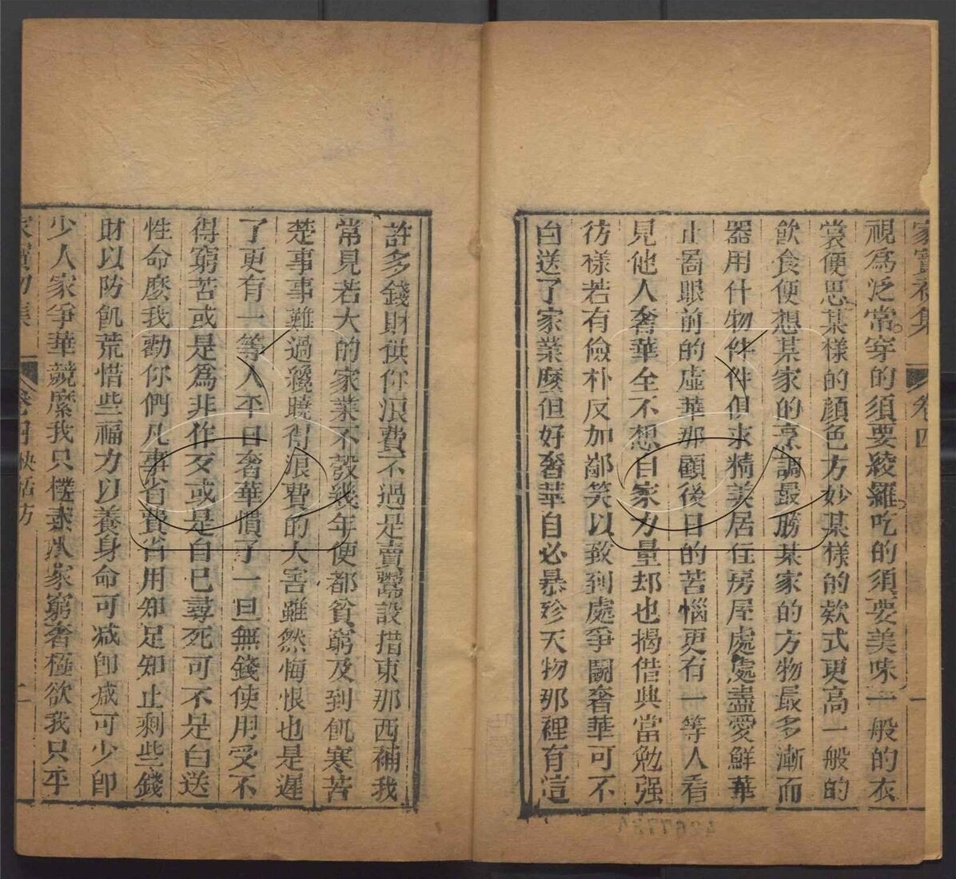 家寶初集 卷四 一
視爲泛常穿的須要綾羅吃的須要美味一般的衣
裳便思某樣的顏色方妙某樣的欵式更高一般的
飲食便想某家的烹調最勝某家的方物最多漸而
器用什物件件俱求精美居住房屋處處盡愛鮮華
止啚眼前的虛華那顧後日的苦惱更有一等人看
見他人奢華全不想自家力量却也揭借典當勉强
彷樣若有儉朴反加鄙笑以致到處爭鬭奢華可不
白送了家業麽但好奢華自必暴殄天物那裡有這
許多錢財供你浪費不過是賣鬻設措東那西補我
常見若大的家業不彀幾年便都貧窮及到飢寒苦
楚事事難過纔曉得浪費的大害雖然悔恨也是遲
了更有一等人平日奢華慣了一旦無錢使用受不
得窮苦或是爲非作歹或是自已尋死可不是白送
性命麽我勸你們凡事省費省用知足知止剩些錢
財以防飢荒惜些福力以養身命可减卽减可少卽
少人家爭華競縻我只樸素人家窮奢極欲我只平
家寶初集 卷四 快活方 二